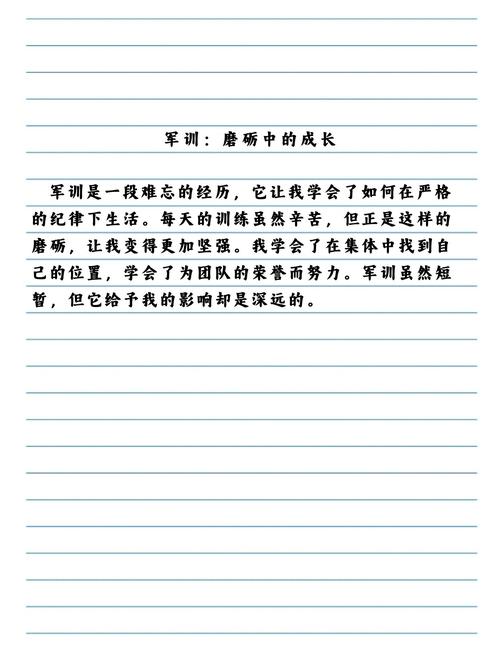 军训：磨砺中的成长
军训是一段难忘的经历，它让我学会了如何在严格
的纪律下生活。每天的训练虽然辛苦，但正是这样的
磨砺，让我变得更加坚强。我学会了在集体中找到自
己的位置，学会了为团队的荣誉而努力。军训虽然短
暂，但它给予我的影响却是深远的。